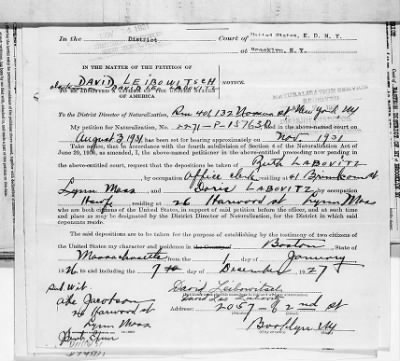 In the District Court of United States, E. D. N. Y.
at Brooklyn, N. Y.
IN THE MATTER OF THE PETITION OF
DAVID LEIBOWITSCH
NOTICE.
TO BE ADMITTED A CITIZEN OF THE UNITED STATES
OF AMERICA
NATURALIZATION SERVICE
To the District Director of Naturalization, Rm 401 132 Nassau st New York NY
My petition for Naturalization, No. 2271-P-157630 and in the above-named court on
August 3, 1931 has been set for hearing approximately on Nov 1931
Take notice, that in accordance with the fourth subdivision of Section 4 of the Naturalization Act of
June 29, 1906, as amended, I, the above-named petitioner in the above-entitled proceeding now pending in
the above-entitled court, request that the depositions be taken of Ruth LABOVITZ
, by occupation Office clerk residing at
Lynn Mass and Doris LABOVITZ, by occupation
residing at 26 Harwood st Lynn Mass
who are both citizens of the United States, in support of said petition before the officer, and at such time
and place as may be designated by the District Director of Naturalization, for the District in which said
deponents reside.
The said depositions are to be taken for the purpose of establishing by the testimony of two citizens of the
United States my character and residence in Boston, State of
Massachusetts 1 day of January
1926 to and including the 7th day of December 1927
Sub. Wit.
Jacobson David Leibowitsch
26 Harwood st
Lynn Mass Address: 2057-62nd st
Brooklyn NY